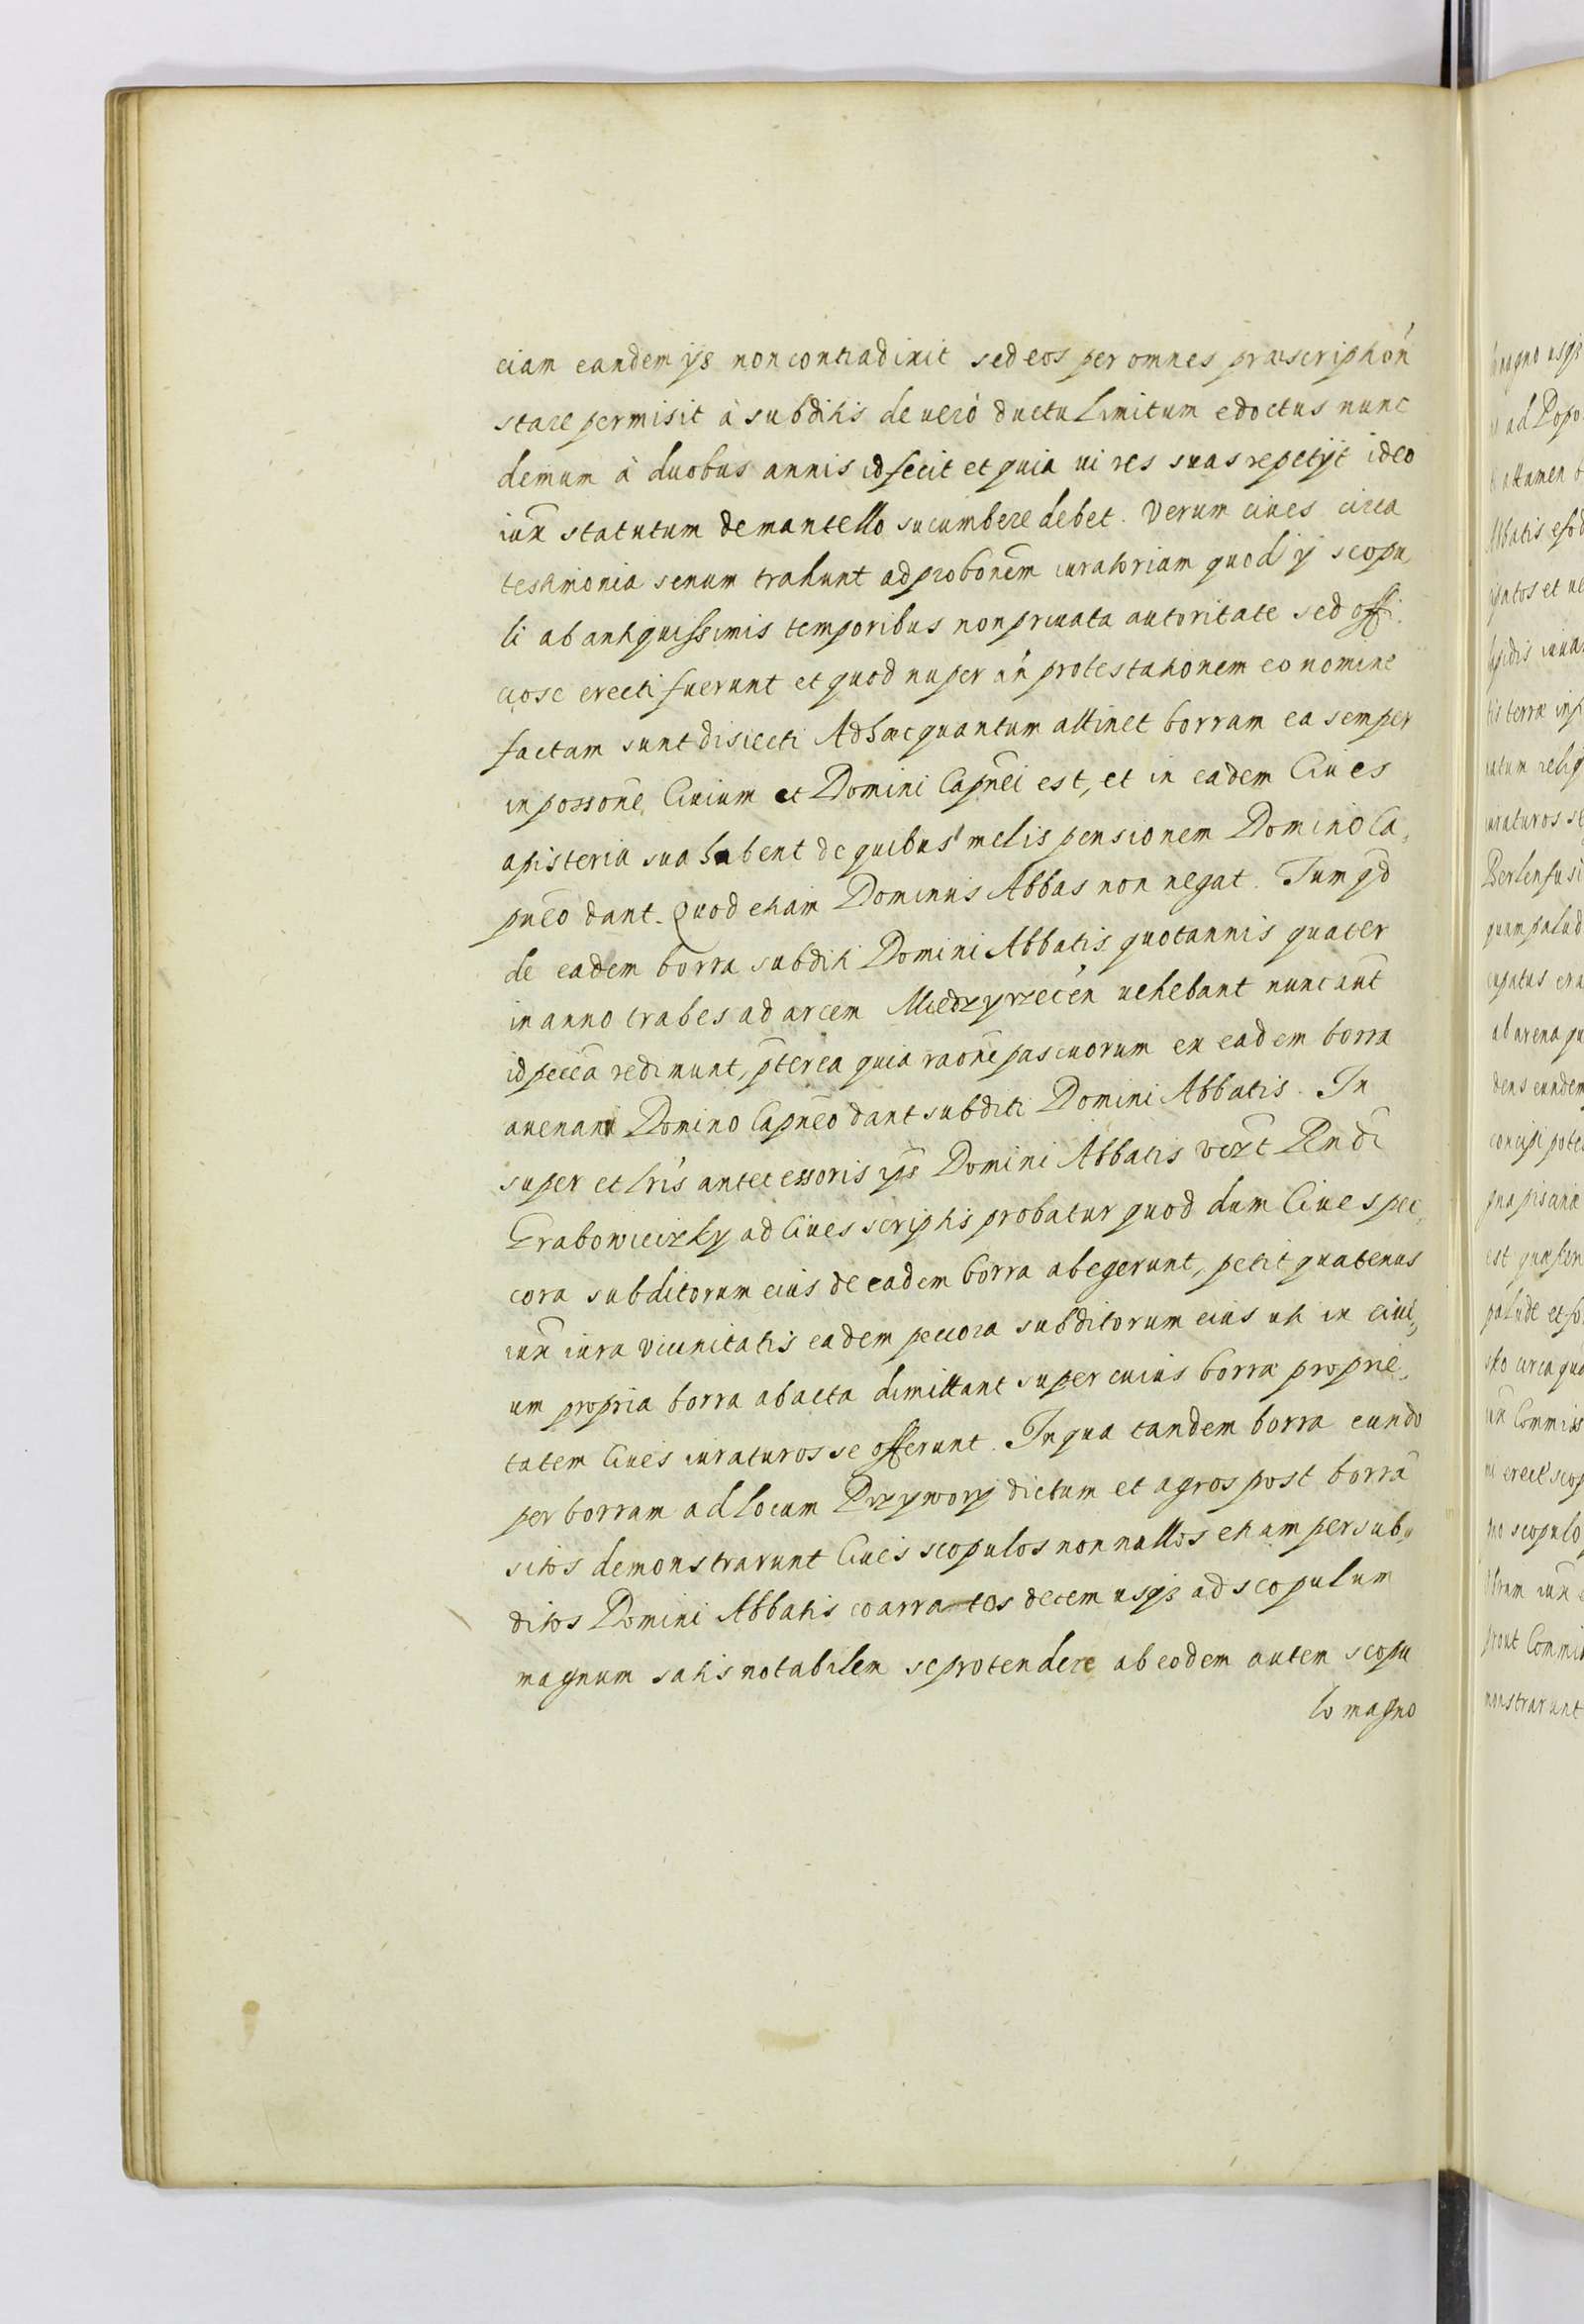 ciam eandem ijs non contradixit sed eos per omnes præscriphón
stare permisit à subditis de uero ductu limitum edoctus nunc
demum à duobus annis id fecit et quia ui res suas repetijt ideo
iux̃ statutum de mantello sucumbere debet. Verum ciues circa
testimonia senum trahunt ad probonẽm iuratoriam quod ij scopu,
li ab antiquissimis temporibus non priuata autoritate sed offi.
ciose erecti fuerunt et quod nuper án protestationem eo nomine
factam sunt disiecti Ad hæc quantum attinet borram ea semper
in possonẽ Ciuium et Domini Capnẽi est, et in eadem Ciues
apisteria sua habent de quibus mellis pensionem Domino Ca,
pnẽo dant. Quod etiam Dominus Abbas non negat. Tum qd̃
de eadem borra subditi Domini Abbatis quotannis quater
in anno trabes ad arcem Miedzyrzecén uehebant nunc aut̃
id peccã redimunt, pterea quia raonẽ pascuorum ex eadem borra
auenam Domino Capnẽo dant subditi Domini Abbatis. In
super et lrĩs antecessoris ips Domini Abbatis Pr̃ndi
Grabowieczky ad Ciues scriptis probatur quod dum Ciues pec,
cora subditorum eius de eadem borra abegerunt, petit quatenus
iux̃ iura vicinitatis eadem peccora subditorum eius uti in ciui,
um propria borra abacta dimittant super cuius borræ proprie,
tatem Ciues iuraturos se offerunt. In qua tandem borra eundo
per borram ad locum Przywory dictum et agros post borrã
sitos demonstrarunt Ciues scopulos non nullos etiam per sub,
ditos Domini Abbatis coarratos decem usqz ad scopulum
magnum satis notabilem se protendere ab eodem autem scopu
lo magno